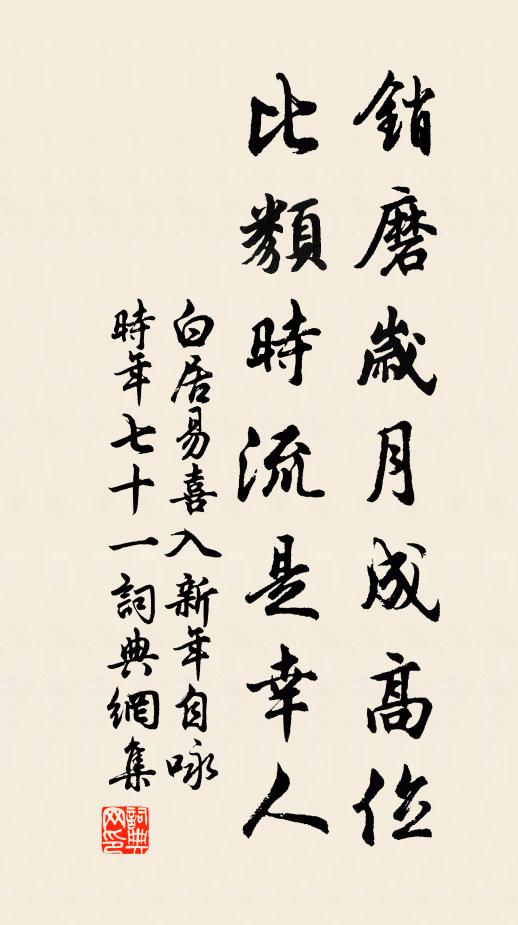 銷磨歲月成高位
比類時流是幸人
白居易喜入新年自咏
時年七十一詞典網集
詞典网印